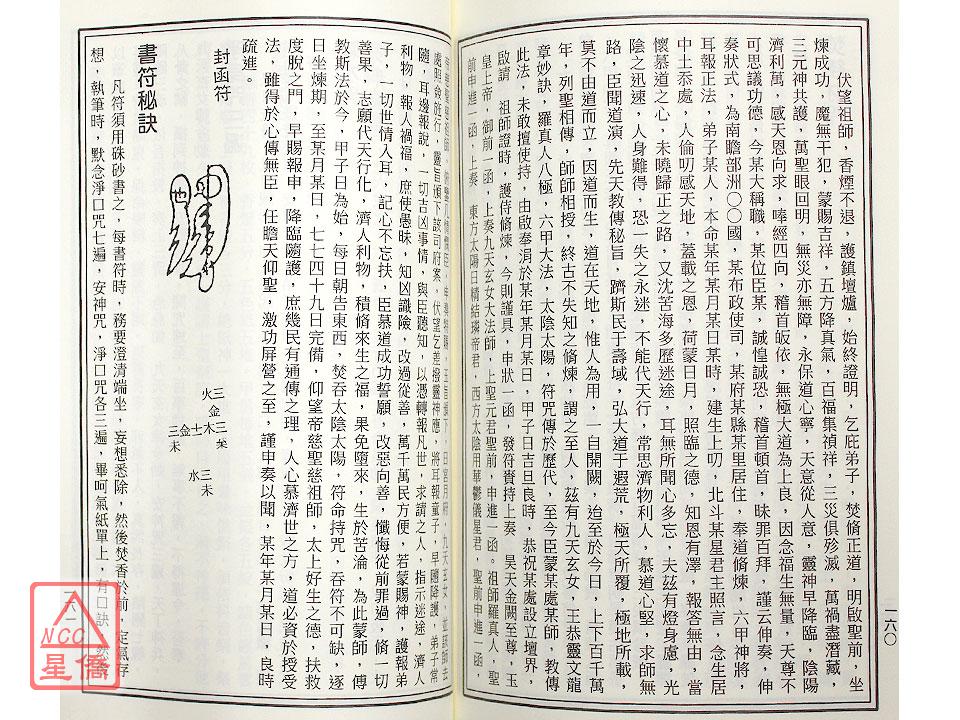 伏望祖師，香煙不退，護鎮壇爐，始終證明，乞庇弟子，焚脩正道，明啟聖前，坐
煉成功，魔無干犯，蒙賜吉祥，五方降真氣，百福集禎祥，三災俱殄滅，萬禍盡潛藏，
三元神共護，萬聖眼回明，無災亦無障，永保道心寧，天意從人意，靈神早降臨，陰陽
濟利萬，感天恩向求，唪經四向，稽首皈依，無極大道為上良，因念福生無量，天尊不
可思議功德，今某大稱職，某位臣某，誠惶誠恐，稽首頓首，昧罪百拜，謹云伸奏，伸
奏狀式，為南瞻部洲〇〇國，某布政使司，某府某縣某里居住，奉道脩煉，六甲神將，
耳報正法，弟子某人，本命某年某月某日某時，建生上叨，北斗某星君主照言，念生居
中土忝處，人倫叨感天地，蓋載之恩，荷蒙日月，照臨之德，知恩有澤，報答無由，當
懷慕道之心，未曉歸正之路，又沈苦海多歷迷途，耳無所聞心多忘，夫茲有燈身慮，光
陰之迅速，人身難得，恐一失之永迷，不能代天行，常思濟物利人，慕道心堅，求師無
路，臣聞道演，先天教傳秘旨，躋斯民于壽域，弘大道于遐荒，極天所覆，極地所載，
莫不由道而立，因道而生，道在天地，惟人為用，一自開闢，迨至於今日，上下百千萬
年，列聖相傳，師師相授，終古不失知之脩煉，謂之至人，茲有九天玄女，王恭靈文龍
章妙訣，羅真人八極，六甲大法，太陰太陽，符咒傳於歷代，至今臣蒙某處某師，教傳
此法，未敢擅使持，由啟奉涓於某年某月日，甲子日吉旦良時，恭祝某處設立壇界，
啟請　祖師證時，護侍脩煉，今則謹具，申狀一函，發符賷持上奏　昊天金闕至尊，玉
皇上帝，御前一函，上奏九天玄女大法師，上聖元君聖前，申進一函。祖師羅真人，聖
前申進一函，上奏　東方太陽日精結璘帝君，西方太陰用華鬱儀星君，聖前申進一函，
處照僉施行，靈旨頒下該司府案，伏望乞差撥靈神應，將耳報童子，早臨降護，弟子常
隨，耳邊報說，一切吉凶事情，與臣聽知，以憑轉報凡世，求請之人，指示迷途，濟人
利物，報人禍福，庶使愚昧，知凶識險，改過從善，萬千萬民方便，若蒙賜神，護報弟
子，一切世情入耳，記心不忘扶，臣慕道成功誓願，改惡向善，懺悔從前罪過，脩一切
善果，志願代天行化，濟人利物，積脩來生之福，果免墮來，生於苦淪，為此蒙師，傳
教斯法於今，甲子日為始，每日朝告東西，焚吞太陰太陽，符命持咒，吞符不可缺，逐
日坐煉期，至某月某日，七七四十九日完備，仰望帝慈聖慈祖師，太上好生之德，扶救
度脫之門，早賜報申，降臨隨護，庶幾民有通傳之理，人心慕濟世之方，道必資於授受
法，雖得於心傳無臣，任瞻天仰聖，激功屏營之至，謹申奏以聞，某年某月某日，良時
疏進。
封函符
火三炁
金三木
土
水三炁
書符秘訣
凡符須用硃砂書之，每書符時，務要澄清端坐，妄想悉除，然後焚香於前，定氣存
想，執筆時，默念淨口咒七遍，安神咒，淨口咒各三遍，畢呵氣紙單上，有口訣，然後
一六〇
一六一
NCC
星僑